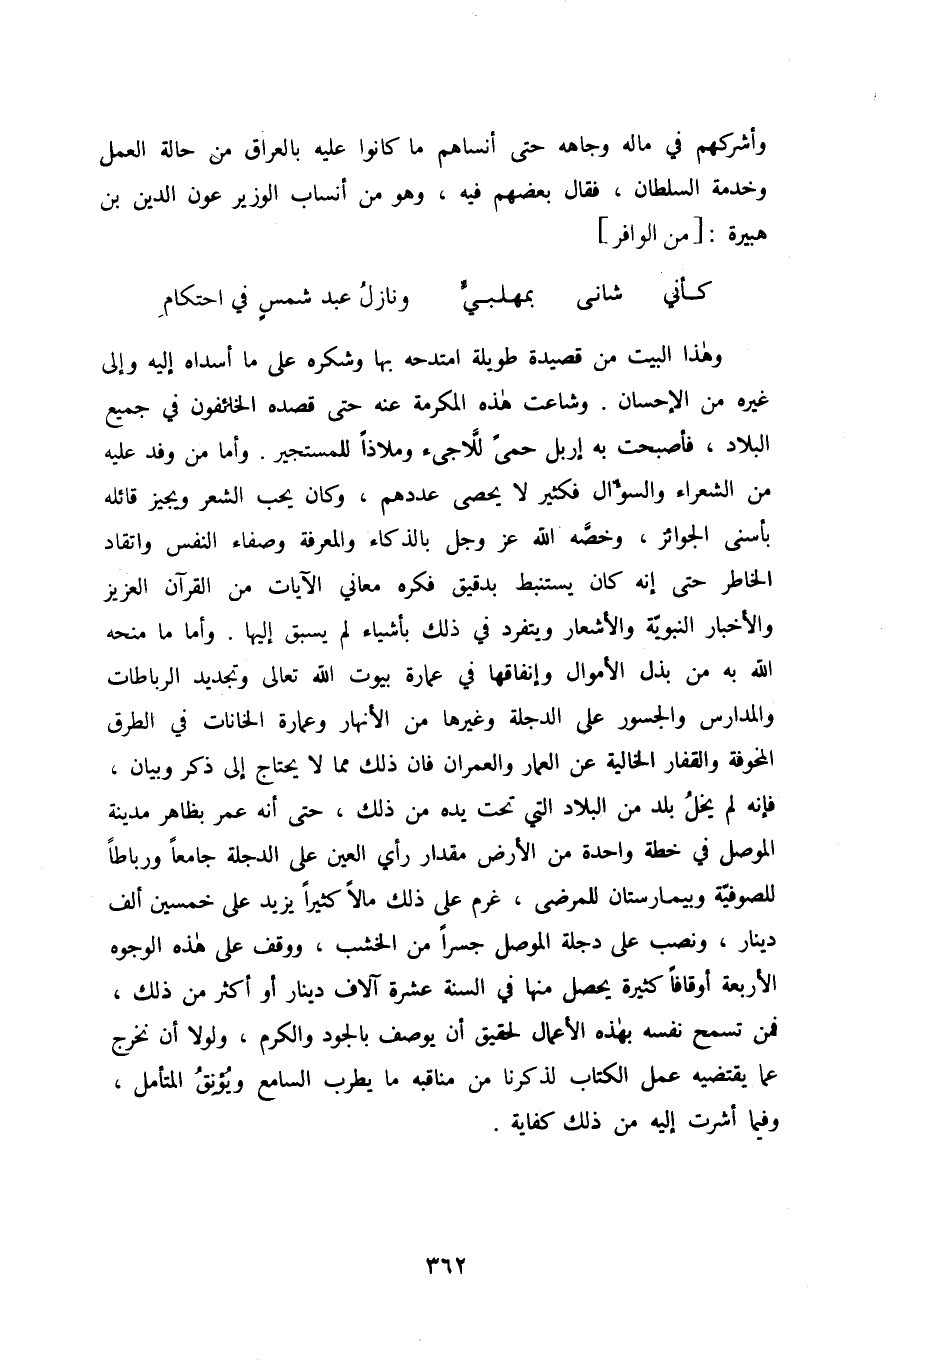 وأشركهم في ماله وجاهه حتى أنساهم ما كانوا عليه بالعراق من حالة العمل
وخدمة السلطان ، فقال بعضهم فيه ، وهو من أنساب الوزير عون الدين بن
هبيرة : [ من الوافر ]
كـأني شانى بمهلبـيٍّ ونازلُ عبد شمسٍ في احتكامِ
وهٰذا البيت من قصيدة طويلة امتدحه بها وشكره على ما أسداه إليه وإلى
غيره من الإحسان . وشاعت هٰذه المكرمة عنه حتى قصده الخائفون في جميع
البلاد ، فأصبحت به إربل حمىً للَّاجيء وملاذاً للمستجير . وأما من وفد عليه
من الشعراء والسوّال فكثير لا يحصى عددهم ، وكان يحب الشعر ويجيز قائله
بأسنى الجوائز ، وخصَّه الله عز وجل بالذكاء والمعرفة وصفاء النفس واتقاد
الخاطر حتى إنه كان يستنبط بدقيق فكره معاني الآيات من القرآن العزيز
والأخبار النبويّة والأشعار ويتفرد في ذلك بأشياء لم يسبق إليها . وأما ما منحه
الله به من بذل الأموال وإنفاقها في عمارة بيوت الله تعالى وتجديد الرباطات
والمدارس والجسور على الدجلة وغيرها من الأنهار وعمارة الخانات في الطرق
المخوفة والقفار الخالية عن العمار والعمران فان ذلك مما لا يحتاج إلى ذكر وبيان ،
فإنه لم يخلُ بلد من البلاد التي تحت يده من ذلك ، حتى أنه عمر بظاهر مدينة
الموصل في خطة واحدة من الأرض مقدار رأي العين على الدجلة جامعاً ورباطاً
للصوفيّة وبيمـارستان للمرضى ، غرم على ذلك مالاً كثيراً يزيد على خمسين ألف
دينار ، ونصب على دجلة الموصل جسراً من الخشب ، ووقف على هٰذه الوجوه
الأربعة أوقافاً كثيرة يحصل منها في السنة عشرة آلاف دينار أو أكثر من ذلك ،
فمن تسمح نفسه بهٰذه الأعمال لحقيق أن يوصف بالجود والكرم ، ولولا أن نخرج
عما يقتضيه عمل الكتاب لذكرنا من مناقبه ما يطرب السامع ويُؤنقُ المتأمل ،
وفيما أشرت إليه من ذلك كفاية .
٣٦٢